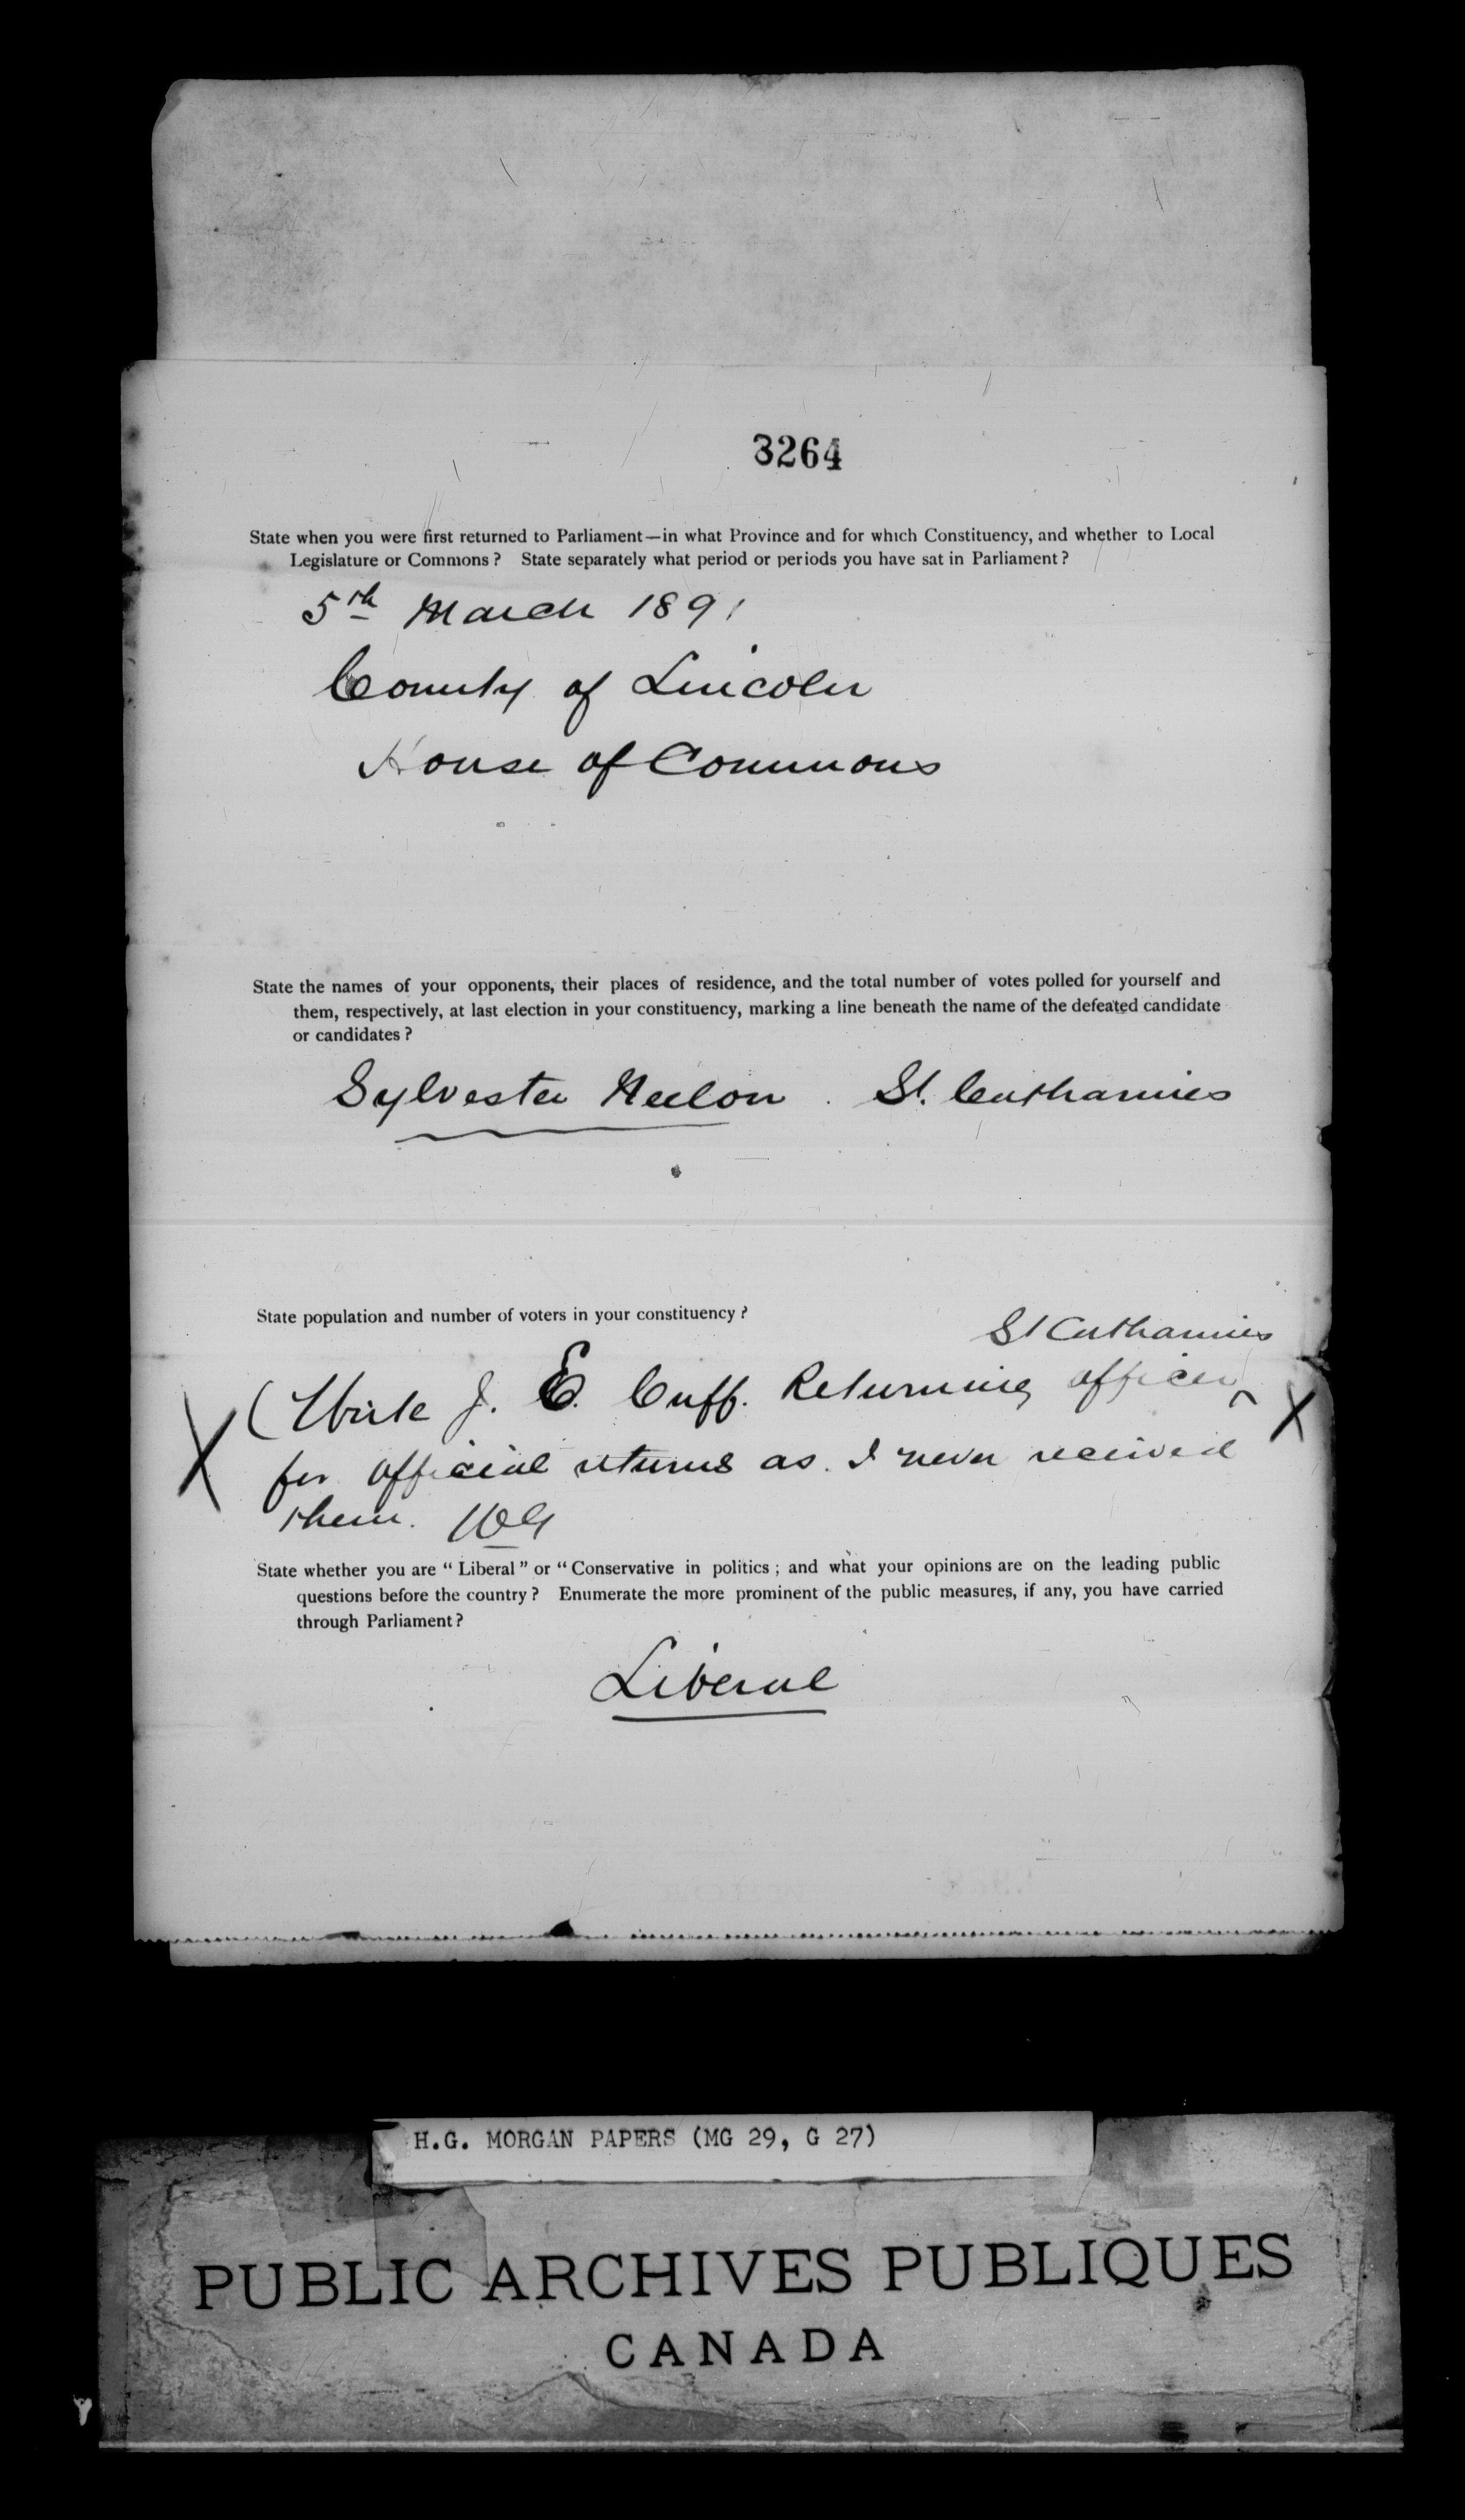 3264
State when you were first returned to Parliament—in what Province and for which Constituency, and whether to Local
Legislature or Commons? State separately what period or periods you have sat in Parliament?
5th March 1891
County of Lincoln
House of Commons
State the names of your opponents, their places of residence, and the total number of votes polled for yourself and
them, respectively, at last election in your constituency, marking a line beneath the name of the defeated candidate
or candidates?
Sylvester Neelon. St. Catharines
State population and number of voters in your constituency?
St Catharines
X (Write J. E. Cuff. Returning officer X
for official returns as I never received
them. WG
State whether you are “Liberal” or “Conservative in politics; and what your opinions are on the leading public
questions before the country? Enumerate the more prominent of the public measures, if any, you have carried
through Parliament?
Liberal
H.G. MORGAN PAPERS (MG 29, G 27)
PUBLIC ARCHIVES PUBLIQUES
CANADA